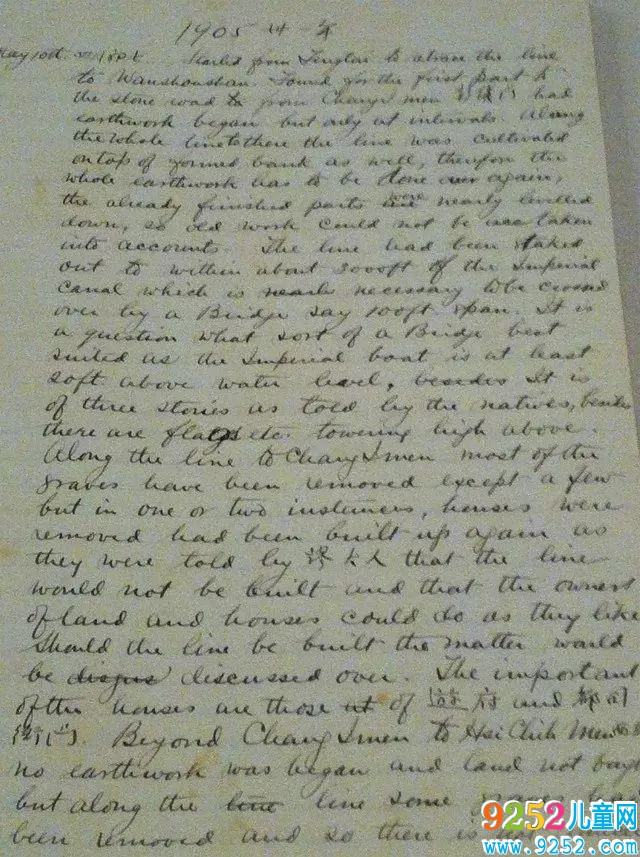 1905 廿一年
May 10th Started from Fengtai to a the line
to Wanshoushan. Found for the first part to
the stone road from Changimen 彰儀门 had
earthwork began but only at intervals. Along
the whole line to there the line was cultivated
on top of formed bank as well, therefore the
whole earthwork has to be done over again,
the already finished parts were nearly levelled
down, so old work could not be taken
into accounts. The line had been staked
out to within about 3000ft of the Imperial
Canal which is necessary to be crossed
over by a Bridge say 100ft span. It is
a question what sort of a Bridge best
suited as the Imperial boat is at least
50ft above water level, besides It is
of three stories as told by the natives, besides
there are flags etc. towering high above.
Along the line to Changimen most of the
graves have been removed except a few
but in one or two instances, houses were
removed had been built up again as
they were told by 大人 that the line
would not be built and that the owners
of land and houses could do as they like
Should the line be built the matter would
be disgus discussed over. The important
of the houses are those at of 府 and
Beyond Changimen to Hsi Chih Men
no earthwork was began and land not
but along the line line some graves had
been removed and so there is
9252儿童网
www.9252.com